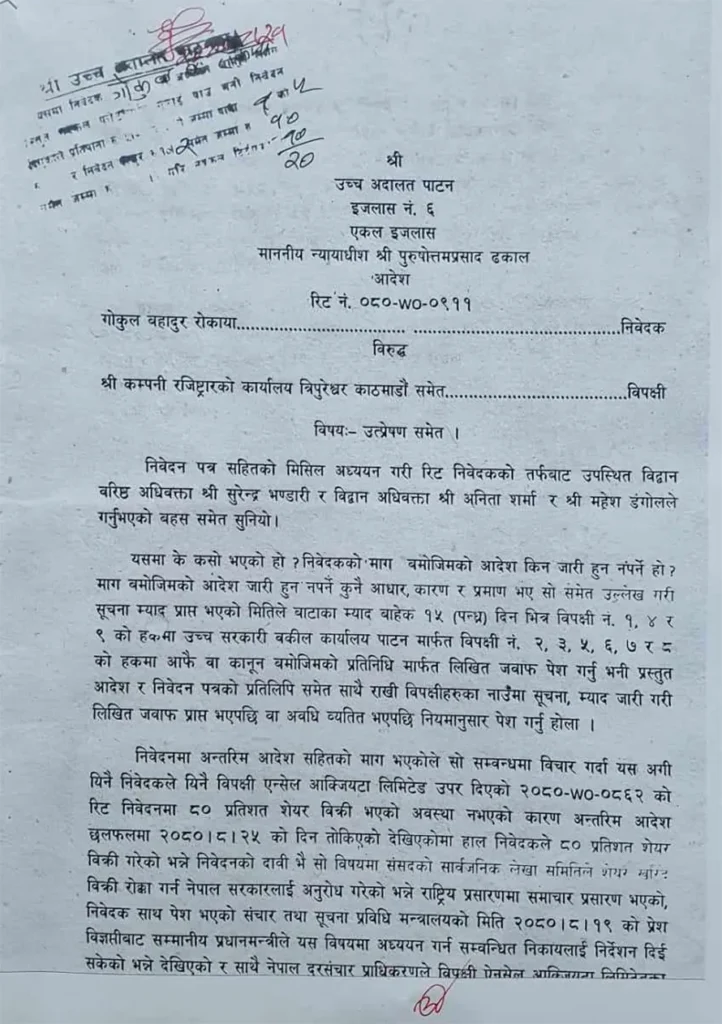 श्री उच्च
निवेदक गोकुल
२०
श्री
उच्च अदालत पाटन
इजलास नं. ६
एकल इजलास
माननीय न्यायाधीश श्री पुरुषोत्तमप्रसाद ढकाल
आदेश
रिट नं. ०८०-WO-०९११
गोकुल बहादुर रोकाया.................................. ..........................................निवेदक
विरुद्ध
श्री कम्पनी रजिष्ट्रारको कार्यालय त्रिपुरेश्वर काठमाडौं समेत....................................विपक्षी
विषयः- उत्प्रेषण समेत ।
निवेदन पत्र सहितको मिसिल अध्ययन गरी रिट निवेदकको तर्फबाट उपस्थित विद्वान
वरिष्ठ अधिवक्ता श्री सुरेन्द्र भण्डारी र विद्वान अधिवक्ता श्री अनिता शर्मा र श्री महेश डंगोलले
गर्नुभएको बहस समेत सुनियो।
यसमा के कसो भएको हो ? निवेदकको माग बमोजिमको आदेश किन जारी हुन नपर्ने हो ?
माग बमोजिमको आदेश जारी हुन नपर्ने कुनै आधार, कारण र प्रमाण भए सो समेत उल्लेख गरी
सूचना म्याद प्राप्त भएको मितिले बाटाका म्याद बाहेक १५ (पन्ध्र) दिन भित्र विपक्षी नं. १, ४ र
९ को हकमा उच्च सरकारी वकील कार्यालय पाटन मार्फत विपक्षी नं. २, ३, ५, ६, ७ र ८
को हकमा आफै वा कानून बमोजिमको प्रतिनिधि मार्फत लिखित जवाफ पेश गर्नु भनी प्रस्तुत
आदेश र निवेदन पत्रको प्रतिलिपि समेत साथै राखी विपक्षीहरुका नाउँमा सूचना, म्याद जारी गरी
लिखित जवाफ प्राप्त भएपछि वा अवधि व्यतित भएपछि नियमानुसार पेश गर्नु होला ।
निवेदनमा अन्तरिम आदेश सहितको माग भएकोले सो सम्बन्धमा विचार गर्दा यस अगी
यिनै निवेदकले यिनै विपक्षी एन्सेल आक्जियटा लिमिटेड उपर दिएको २०८०-WO-०८६२ को
रिट निवेदनमा ८० प्रतिशत शेयर विक्री भएको अवस्था नभएको कारण अन्तरिम आदेश
छलफलमा २०८०।८।२५ को दिन तोकिएको देखिएकोमा हाल निवेदकले ८० प्रतिशत शेयर
विक्री गरेको भन्ने निवेदनको दावी भै सो विषयमा संसदको सार्वजनिक लेखा समितिले शेयर खरिद
विक्री रोक्का गर्न नेपाल सरकारलाई अनुरोध गरेको भन्ने राष्ट्रिय प्रसारणमा समाचार प्रसारण भएको,
निवेदक साथ पेश भएको संचार तथा सूचना प्रविधि मन्त्रालयको मिति २०८०।८।१९ को प्रेश
विज्ञप्तीबाट सम्मानीय प्रधानमन्त्रीले यस विषयमा अध्ययन गर्न सम्बन्धित निकायलाई निर्देशन दिई
सकेको भन्ने देखिएको र साथै नेपाल दरसंचार प्राधिकरणले विपक्षी ऐनसेल आक्जियटा लिमिटेडका